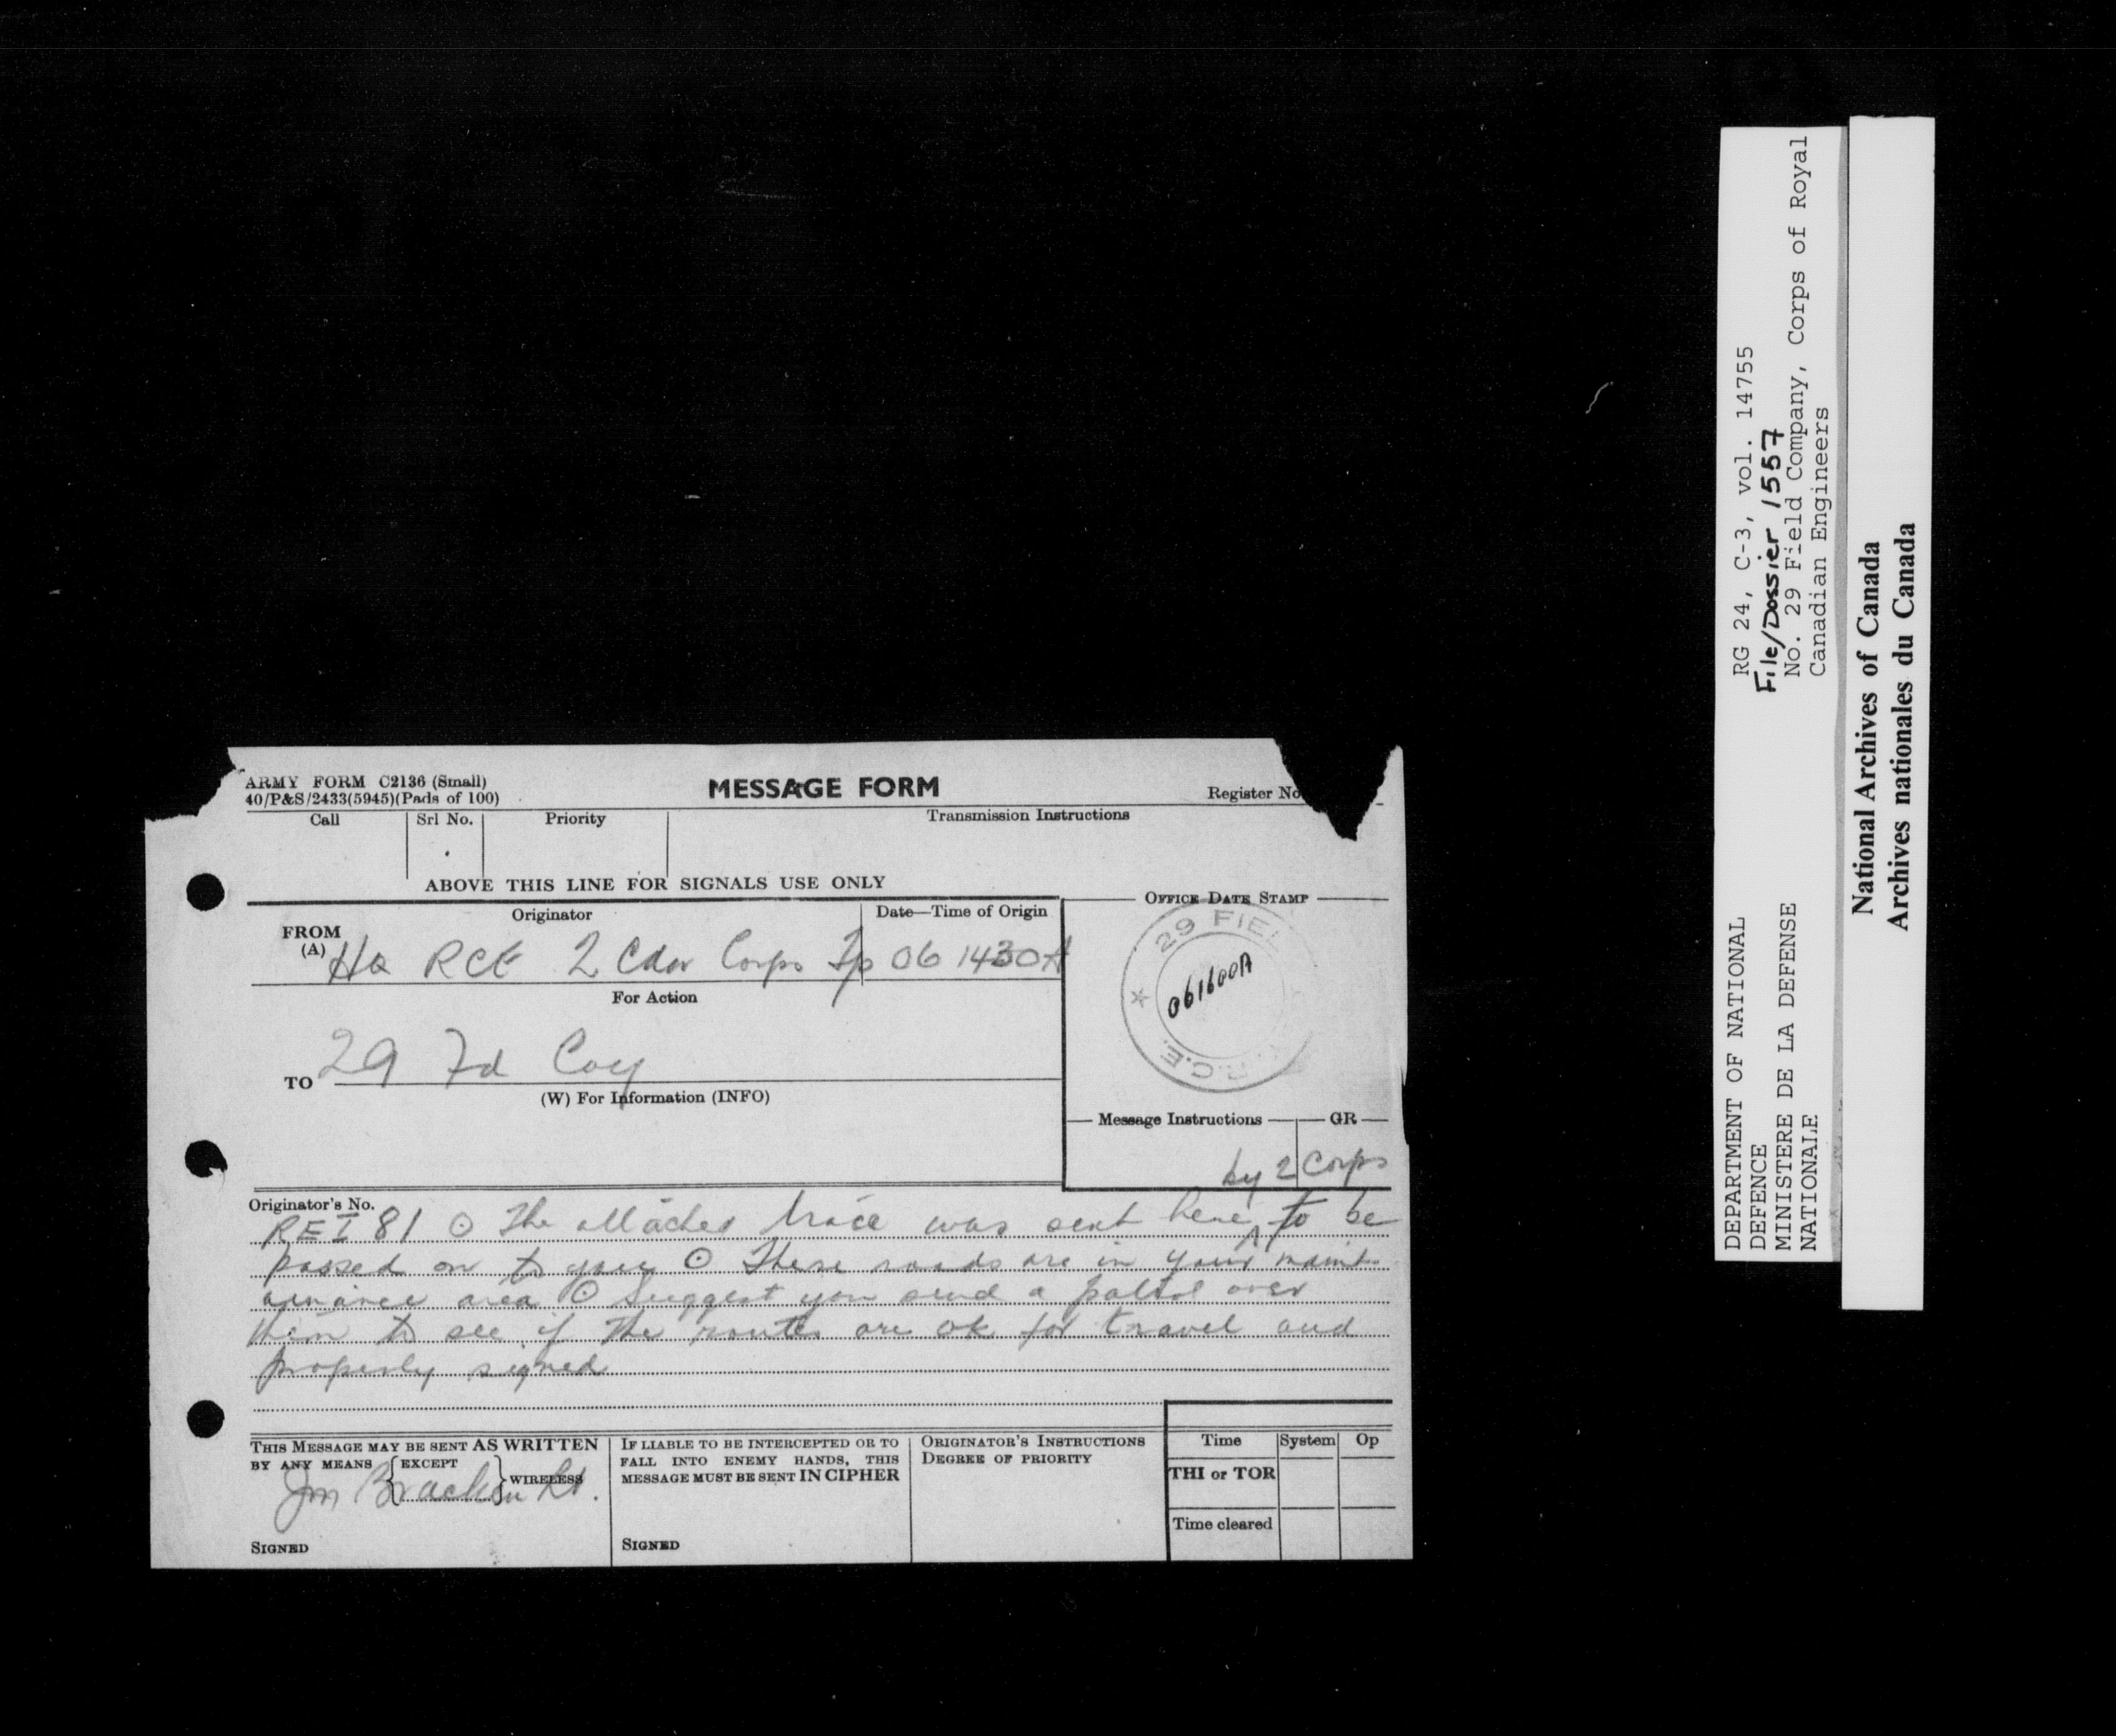 ARMY FORM C2136 (Small)
40/P&S/2433(5945)(Pads of 100)
MESSAGE FORM
Register No
Call
Srl No.
Priority
Transmission Instructions
ABOVE THIS LINE FOR SIGNALS USE ONLY
Originator
Date—Time of Origin
FROM
(A) HQ RCE 2 Cdn Corps Tps 06 1430A
For Action
TO 29 Fd Coy
(W) For Information (INFO)
OFFICE DATE STAMP
29 FIEL
061600A
R.C.E.
Message Instructions
GR
by 2 Corps
Originator's No.
REI 81 ⊙ The attached trace was sent here ^ to be
passed on to you ⊙ These roads are in your maint-
enance area ⊙ Suggest you send a patrol over
them to see if the routes are ok for travel and
properly signed
THIS MESSAGE MAY BE SENT AS WRITTEN
BY ANY MEANS { EXCEPT } WIRELESS
Jm Bracken Lt.
SIGNED
IF LIABLE TO BE INTERCEPTED OR TO
FALL INTO ENEMY HANDS, THIS
MESSAGE MUST BE SENT IN CIPHER
SIGNED
ORIGINATOR'S INSTRUCTIONS
DEGREE OF PRIORITY
Time System Op
THI or TOR
Time cleared
DEPARTMENT OF NATIONAL
DEFENCE
MINISTERE DE LA DEFENSE
NATIONALE
RG 24, C-3, vol. 14755
File/Dossier 1557
No. 29 Field Company, Corps of Royal
Canadian Engineers
National Archives of Canada
Archives nationales du Canada